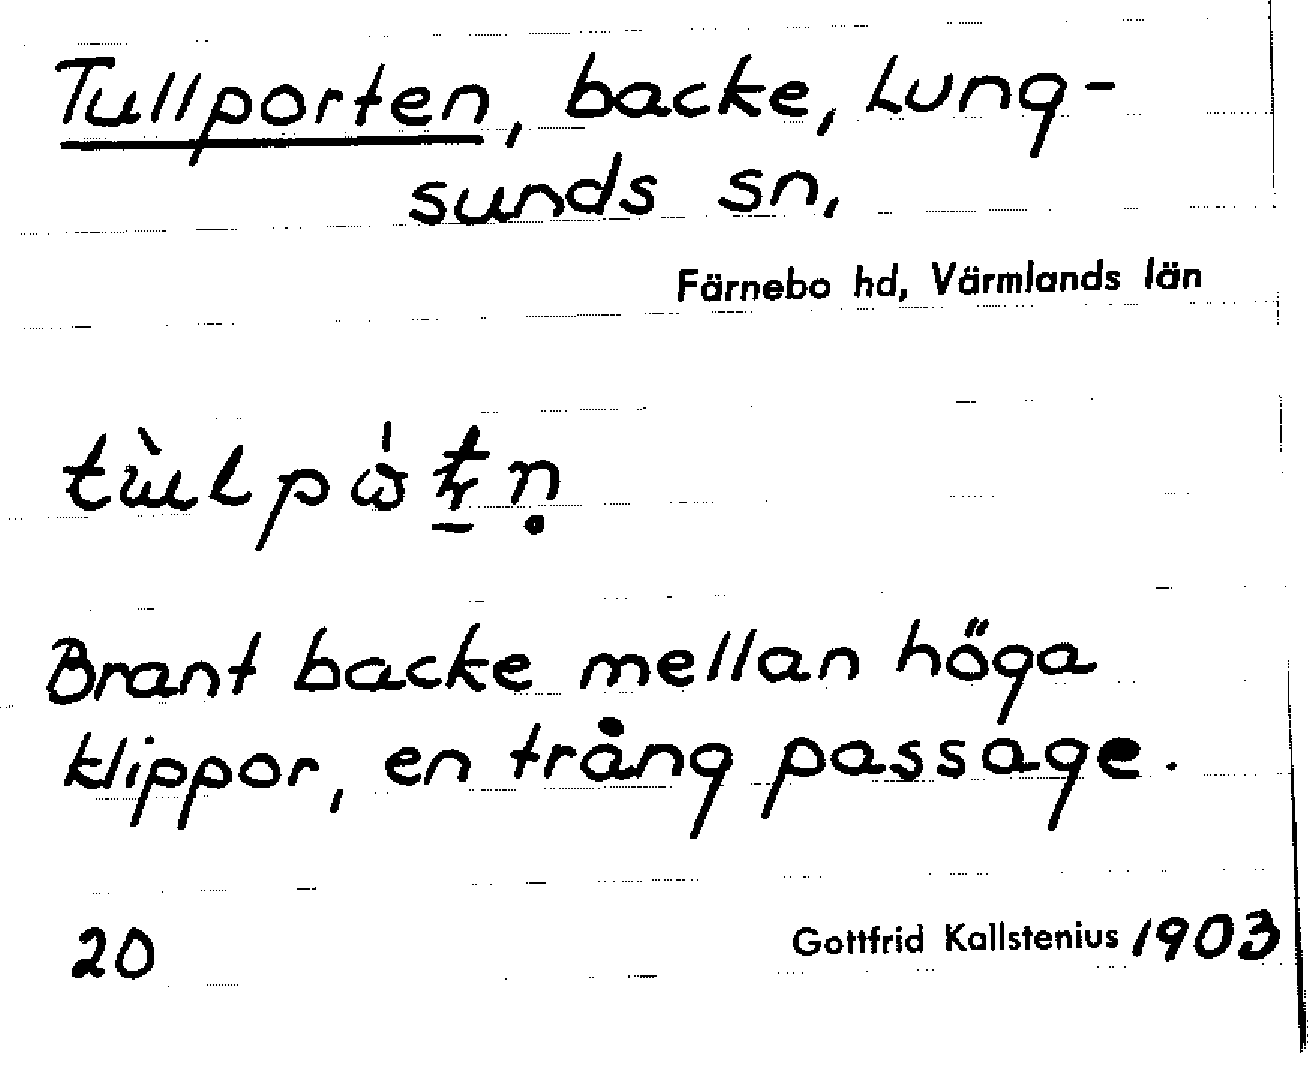 Tullporten, backe, Lung-
sunds sn,
Färnebo hd, Värmlands län
Brant backe mellan höga
klippor, en trång passage.
20
Gottfrid Kallstenius 1903